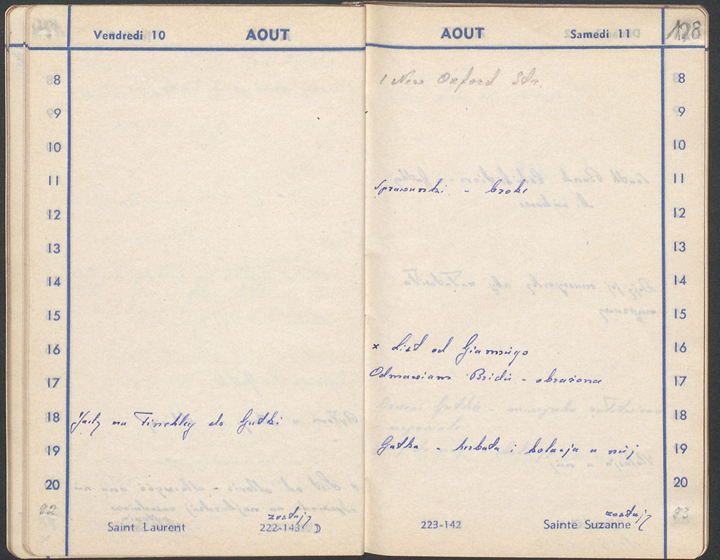 Vendredi 10 AOUT
8
9
10
11
12
13
14
15
16
17
18 Jadę na Finchley do Gutki
19
20
22 zostaję
Saint Laurent 222-143
AOUT Samedi 11 128
1 New Oxford Str. 8
9
10
11
Sprawunki - broke
12
13
14
15
x List od 16
Odmawiam Bridu - obrażona 17
18
Gutka - herbata i kolacja u niej 19
20
zostaję 23
223-142 Sainte Suzanne